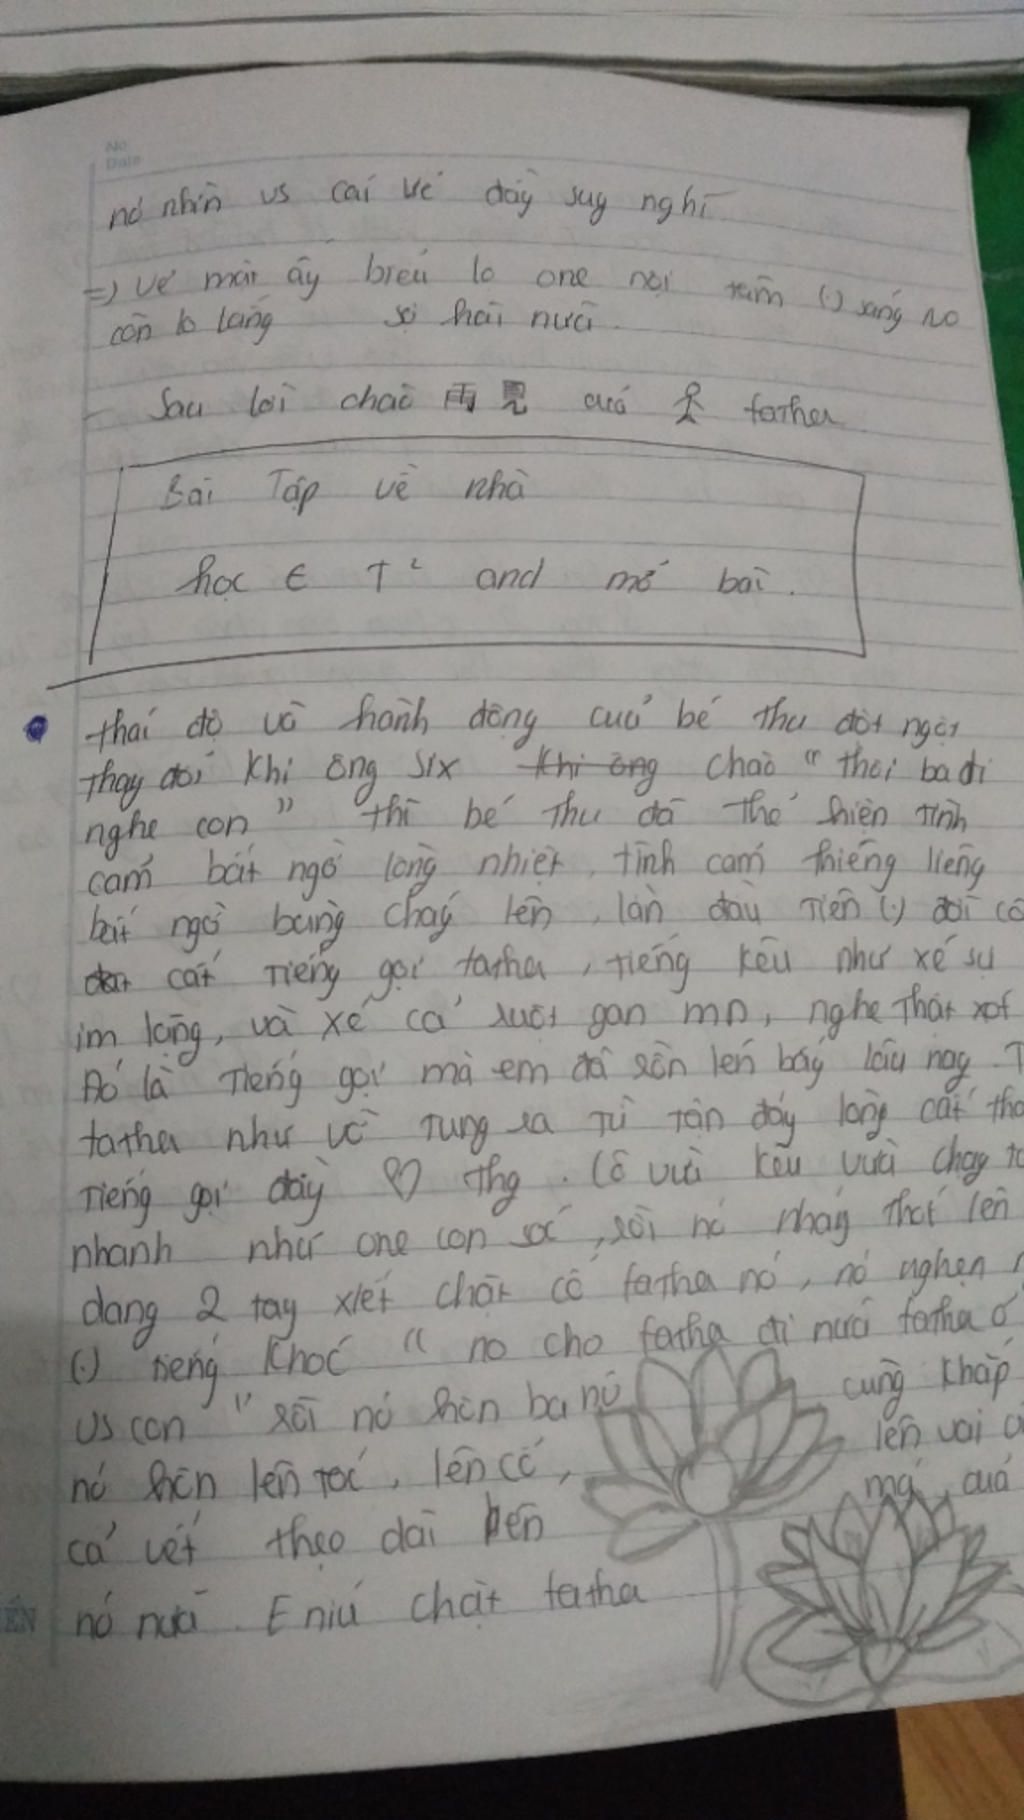 No
Date
nó nhìn vs cái vẻ đầy suy nghĩ
=) vẻ mặt ấy biểu lo one nội tâm (.) sáng no
còn lo lắng sợ hãi nữa.
- Sau lời chào 再見 của father
Bài Tập về nhà
học € T² and mở bài.
thái độ và hành động của bé thu đột ngột
thay đổi khi ông six khi ông chào " thôi ba đi
nghe con " thì bé thu đã thể hiện tình
cảm bất ngờ lòng nhiệt, tình cảm thiêng liêng
bất ngờ bùng cháy lên, lần đầu tiên (.) đời cô
cất tiếng gọi fatha, tiếng kêu như xé sự
im lặng, và xé cả ruột gan mn, nghe thật xót
Đó là tiếng gọi mà em đã dồn lén bấy lâu nay. T
fatha như vỡ tung ra từ tận đáy lòng cất tho
tiếng gọi đầy ♡ thg. Cô vừa kêu vừa chạy tớ
nhanh như one con sóc, rồi nó nhảy thót lên
dang 2 tay xiết chặt cổ fatha nó, nó nghẹn
(.) tiếng khóc " no cho fatha đi nữa fatha ở
vs con " rồi nó hôn ba nó cùng khắp
nó hôn lên tóc, lên cổ, lên vai
cả vết thẹo dài bên má của
nó nữa. E níu chặt fatha